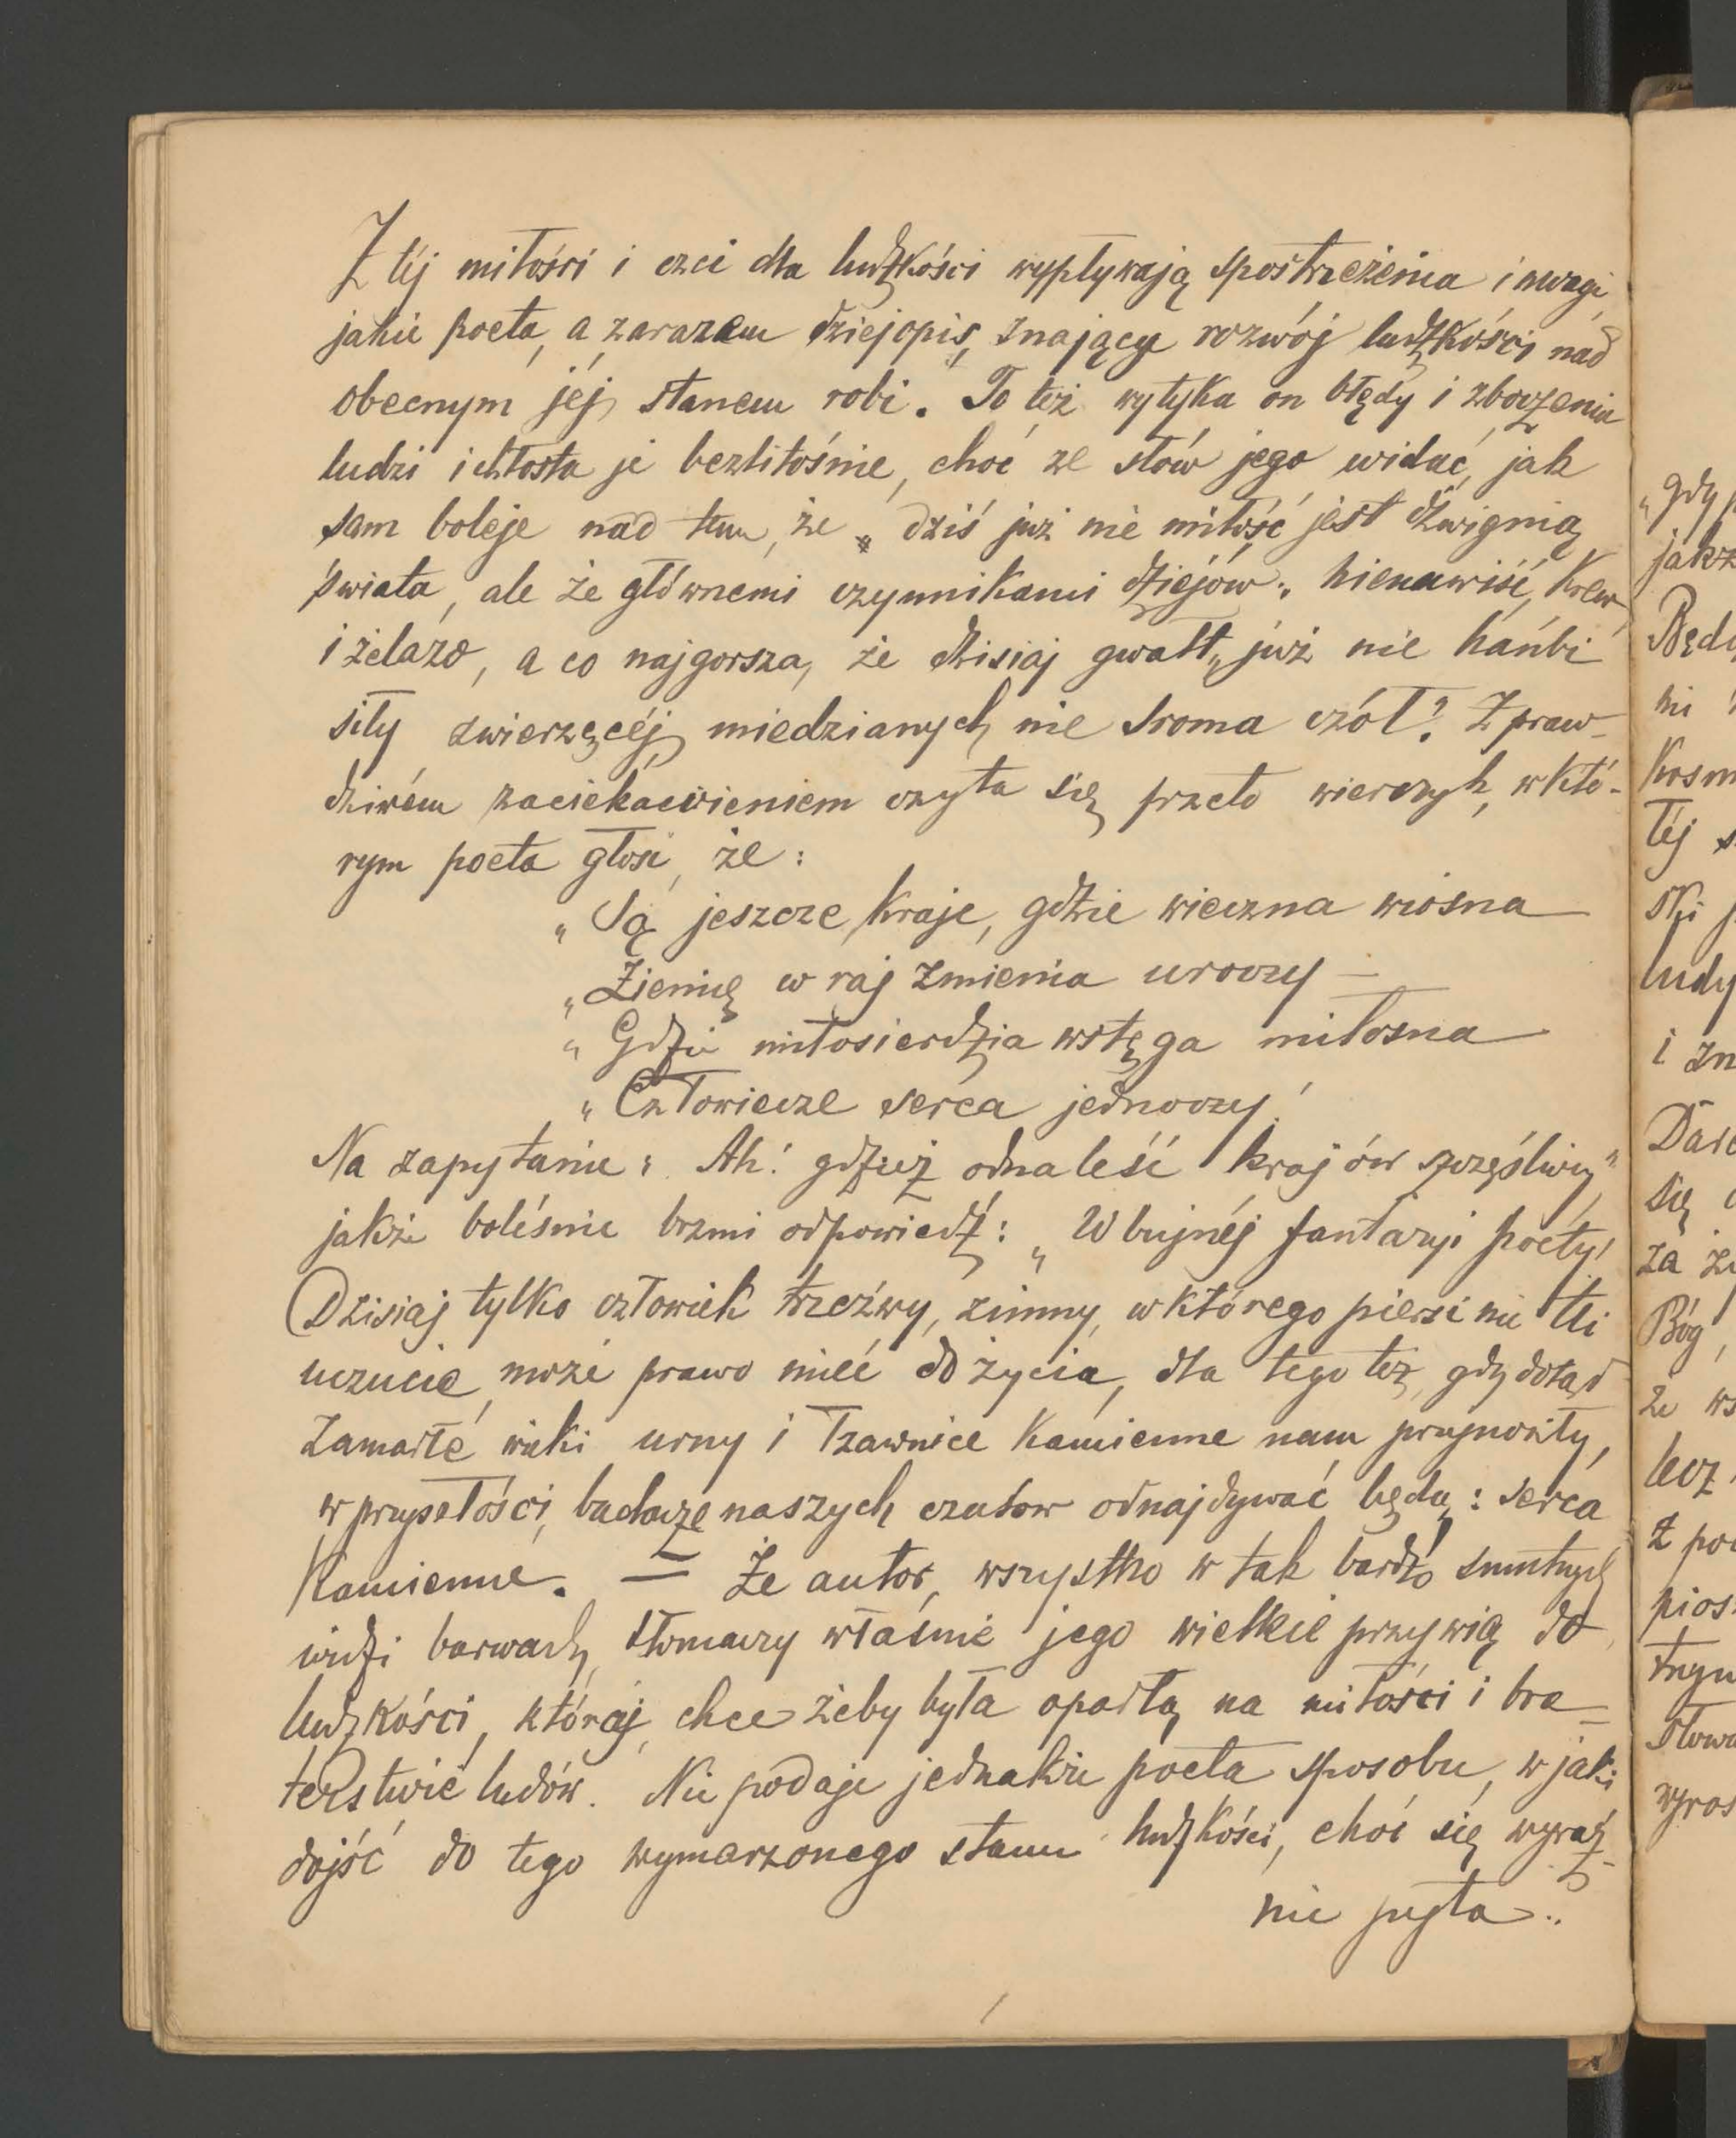 Z téj miłości i czci dla ludzkości wypływają spostrzeżenia i uwagi,
jakie poeta, a zarazem dziejopis, znający rozwój ludzkości nad
obecnym jéj stanem robi. To też wytyka on błędy i zboczenia
ludzi i chłosta je bezlitośnie, choć ze słów jego widać, jak
sam boleje nad tem, że „dziś już nie miłość jest dźwignią
świata, ale że głównemi czynnikami dziejów: nienawiść, krew
i żelazo, a co najgorsza, że dzisiaj gwałt „już nie hańbi
siły zwierzęcéj miedzianych nie sroma czół? Z praw-
dziwém zaciekawieniem czyta się przeto wierszyk, w któ-
rym poeta głosi, że:
„Są jeszcze kraje, gdzie wieczna wiosna
„Ziemię w raj zmienia uroczy —
„Gdzie miłosierdzia wstęga miłosna
„Człowiecze serca jednoczy!
Na zapytanie: Ah! gdzież odnaleść kraj ów szczęśliwy,"
jakże boleśnie brzmi odpowiedź: „W bujnéj fantazyi poety!
Dzisiaj tylko człowiek trzeźwy, zimny, w którego piersi nie tli
uczucie, może prawo mieć do życia, dla tego też, gdy dotąd
zamarłe wieki urny i łzawnice kamienne nam przynosiły,
w przyszłości, badacze naszych czasów odnajdywać będą: serca
kamienne. — Że autor, wszystko w tak bardzo smutnych
widzi barwach, tłomaczy właśnie jego wielkie przywią do
ludzkości, któréj, chce żeby była opartą na miłości i bra-
terstwie ludów. Nie podaje jednakże poeta sposobu, w jaki
dojść do tego wymarzonego stanu ludzkości, choć się wyraź-
nie pyta..
„gdy
Będ
i zn
za
Bóg,
lecz
z po